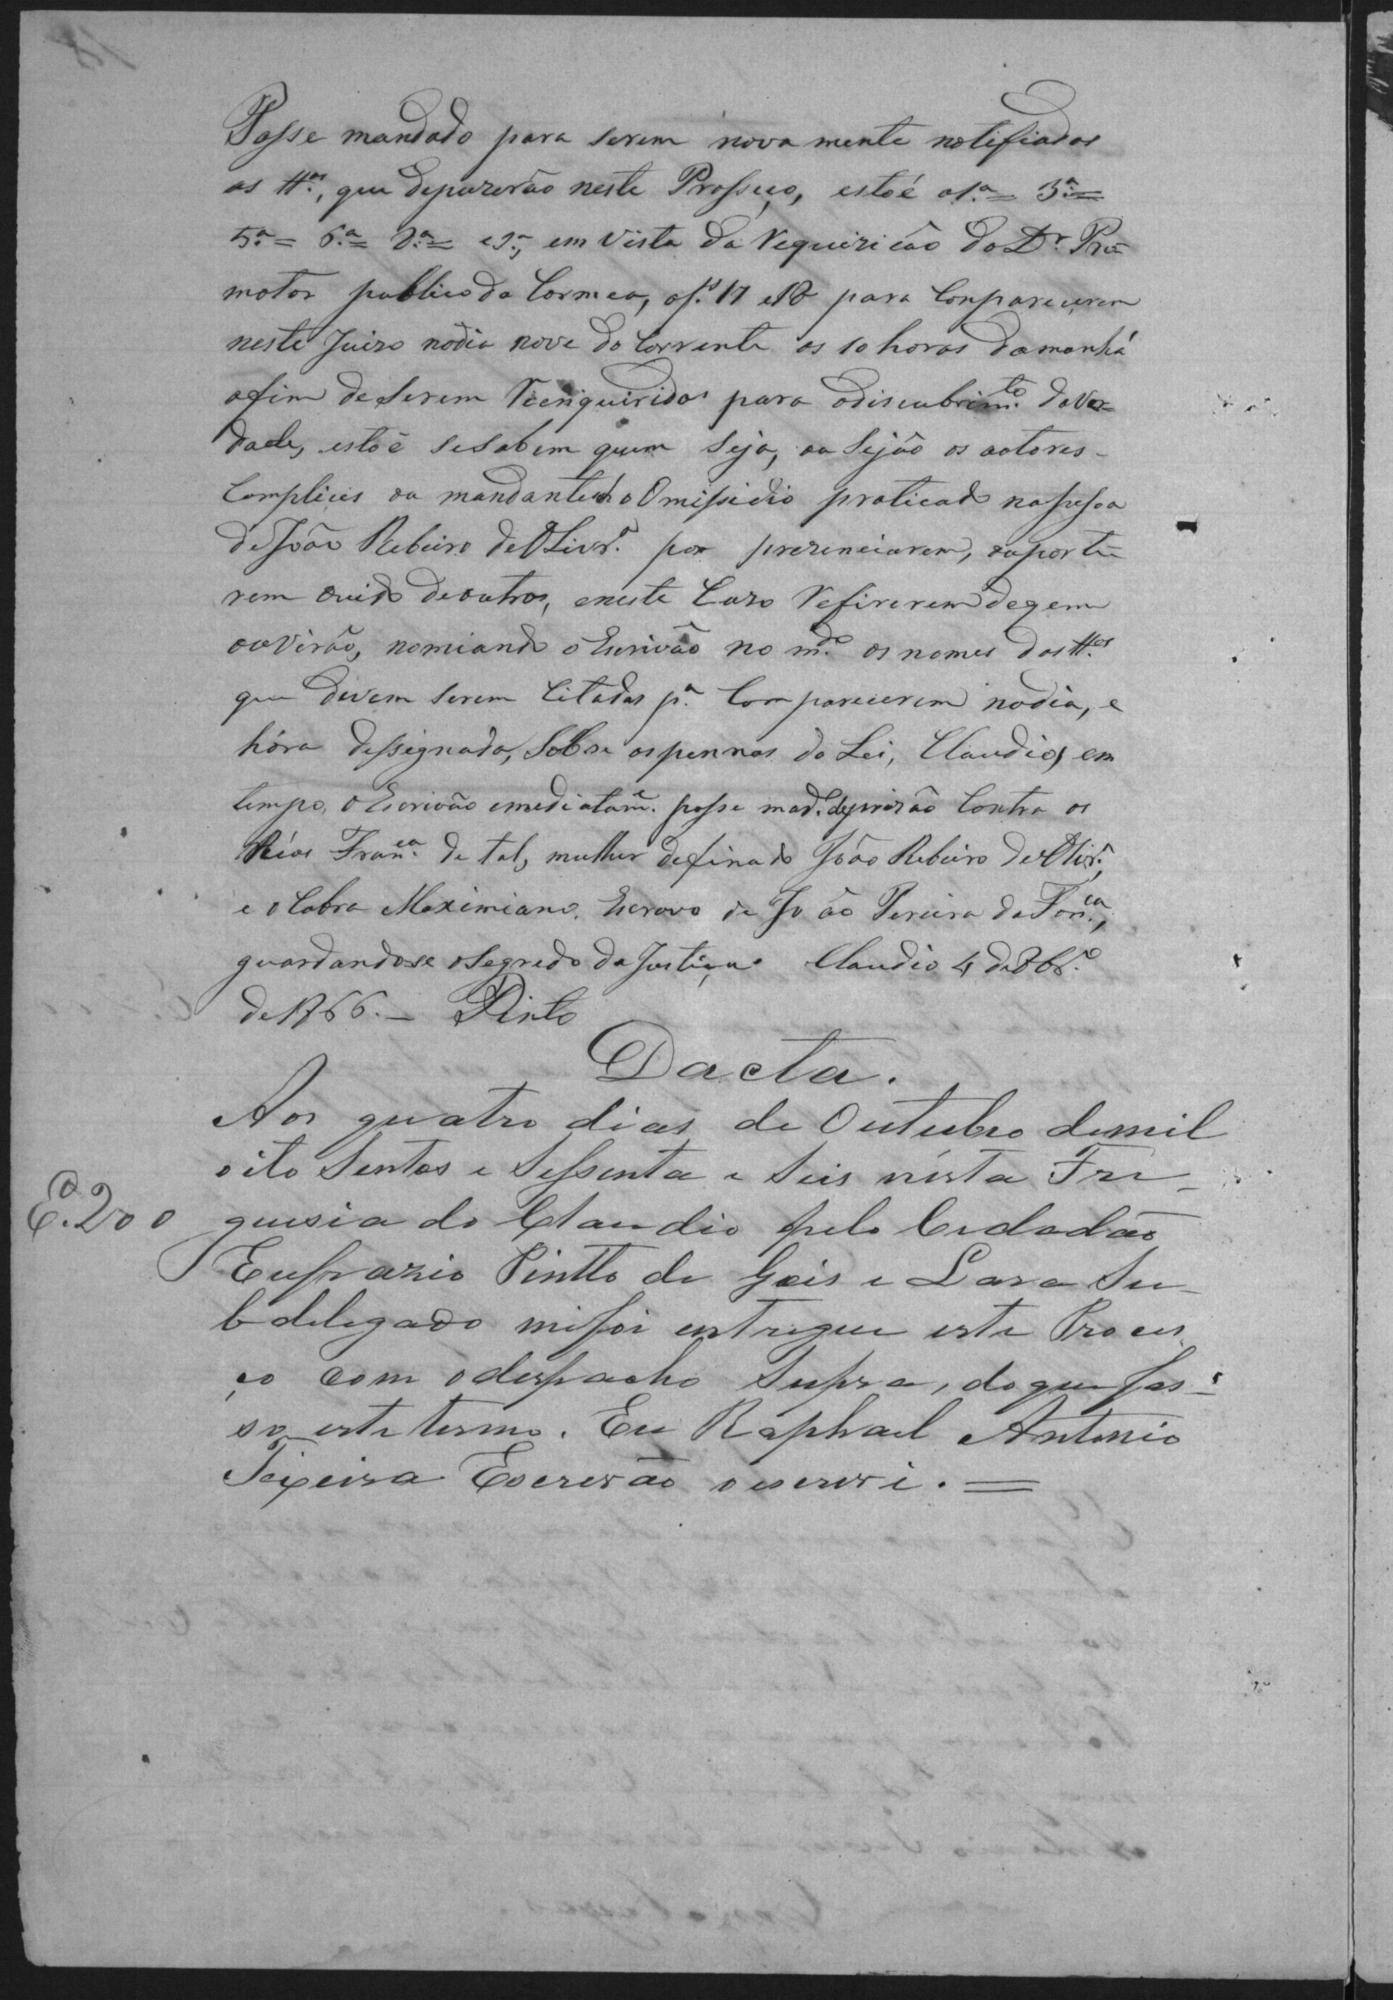 Passe mandado para serem nova mente notifiadas
as tt.as, que depuzerão neste Prosseço, esto é a 1.a = 3.a =
5.a = 6.a = 8.a = e 9.a, em vista da requizicão do D.r Pro-
motor publico da Comca, af.s 17 e 18 para Comparecerem
neste Juizo nodia nove do Corrente as 10 horas damanhá
afim deserem reenqueridas para odiscubrim.to daver-
dade, esto é sesabem quem seja, ou sejão os autores-
Complices ou mandantes do Omissidio praticado napesoa
deJoão Ribeiro deOLivr.a por prezenciarem, ouporte-
rem ouvido deoutros, eneste Cazo refirirem deqem
ouvirão, nomiando o Escrivão no m.do os nomes das tt.as
que devem serem Citadas p.a Comparecerem nodia, e
hóra dessignada, Sobre aspennas da Lei, Claudio, em
tempo, o Escrivão emediatam.e passe mad.o deprizão Contra os
Réos Fran.ca de tal, mulher definado João Ribeiro deOlivr.a,
e o Cabra Maximiano, Escravo de João Pereira da Fon.ca,
guardandose osegredo da Justiça. Claudio 4 de 8br.o
de 1866. — Pinto
Dacta.
Aos quatro dias de Outubro demil
oito Sentos e Sessenta e Seis nésta Fre-
E. 200 guesia do Claudio pelo Cidadão
Eufrazio Pintto de Gois e Lara Su-
bdelegado mifoi entregue este Proces
ço com odespacho Supra, doque fas-
so este termo. Eu Raphael Antonio
Teixeira Escrevão o escrevi. =